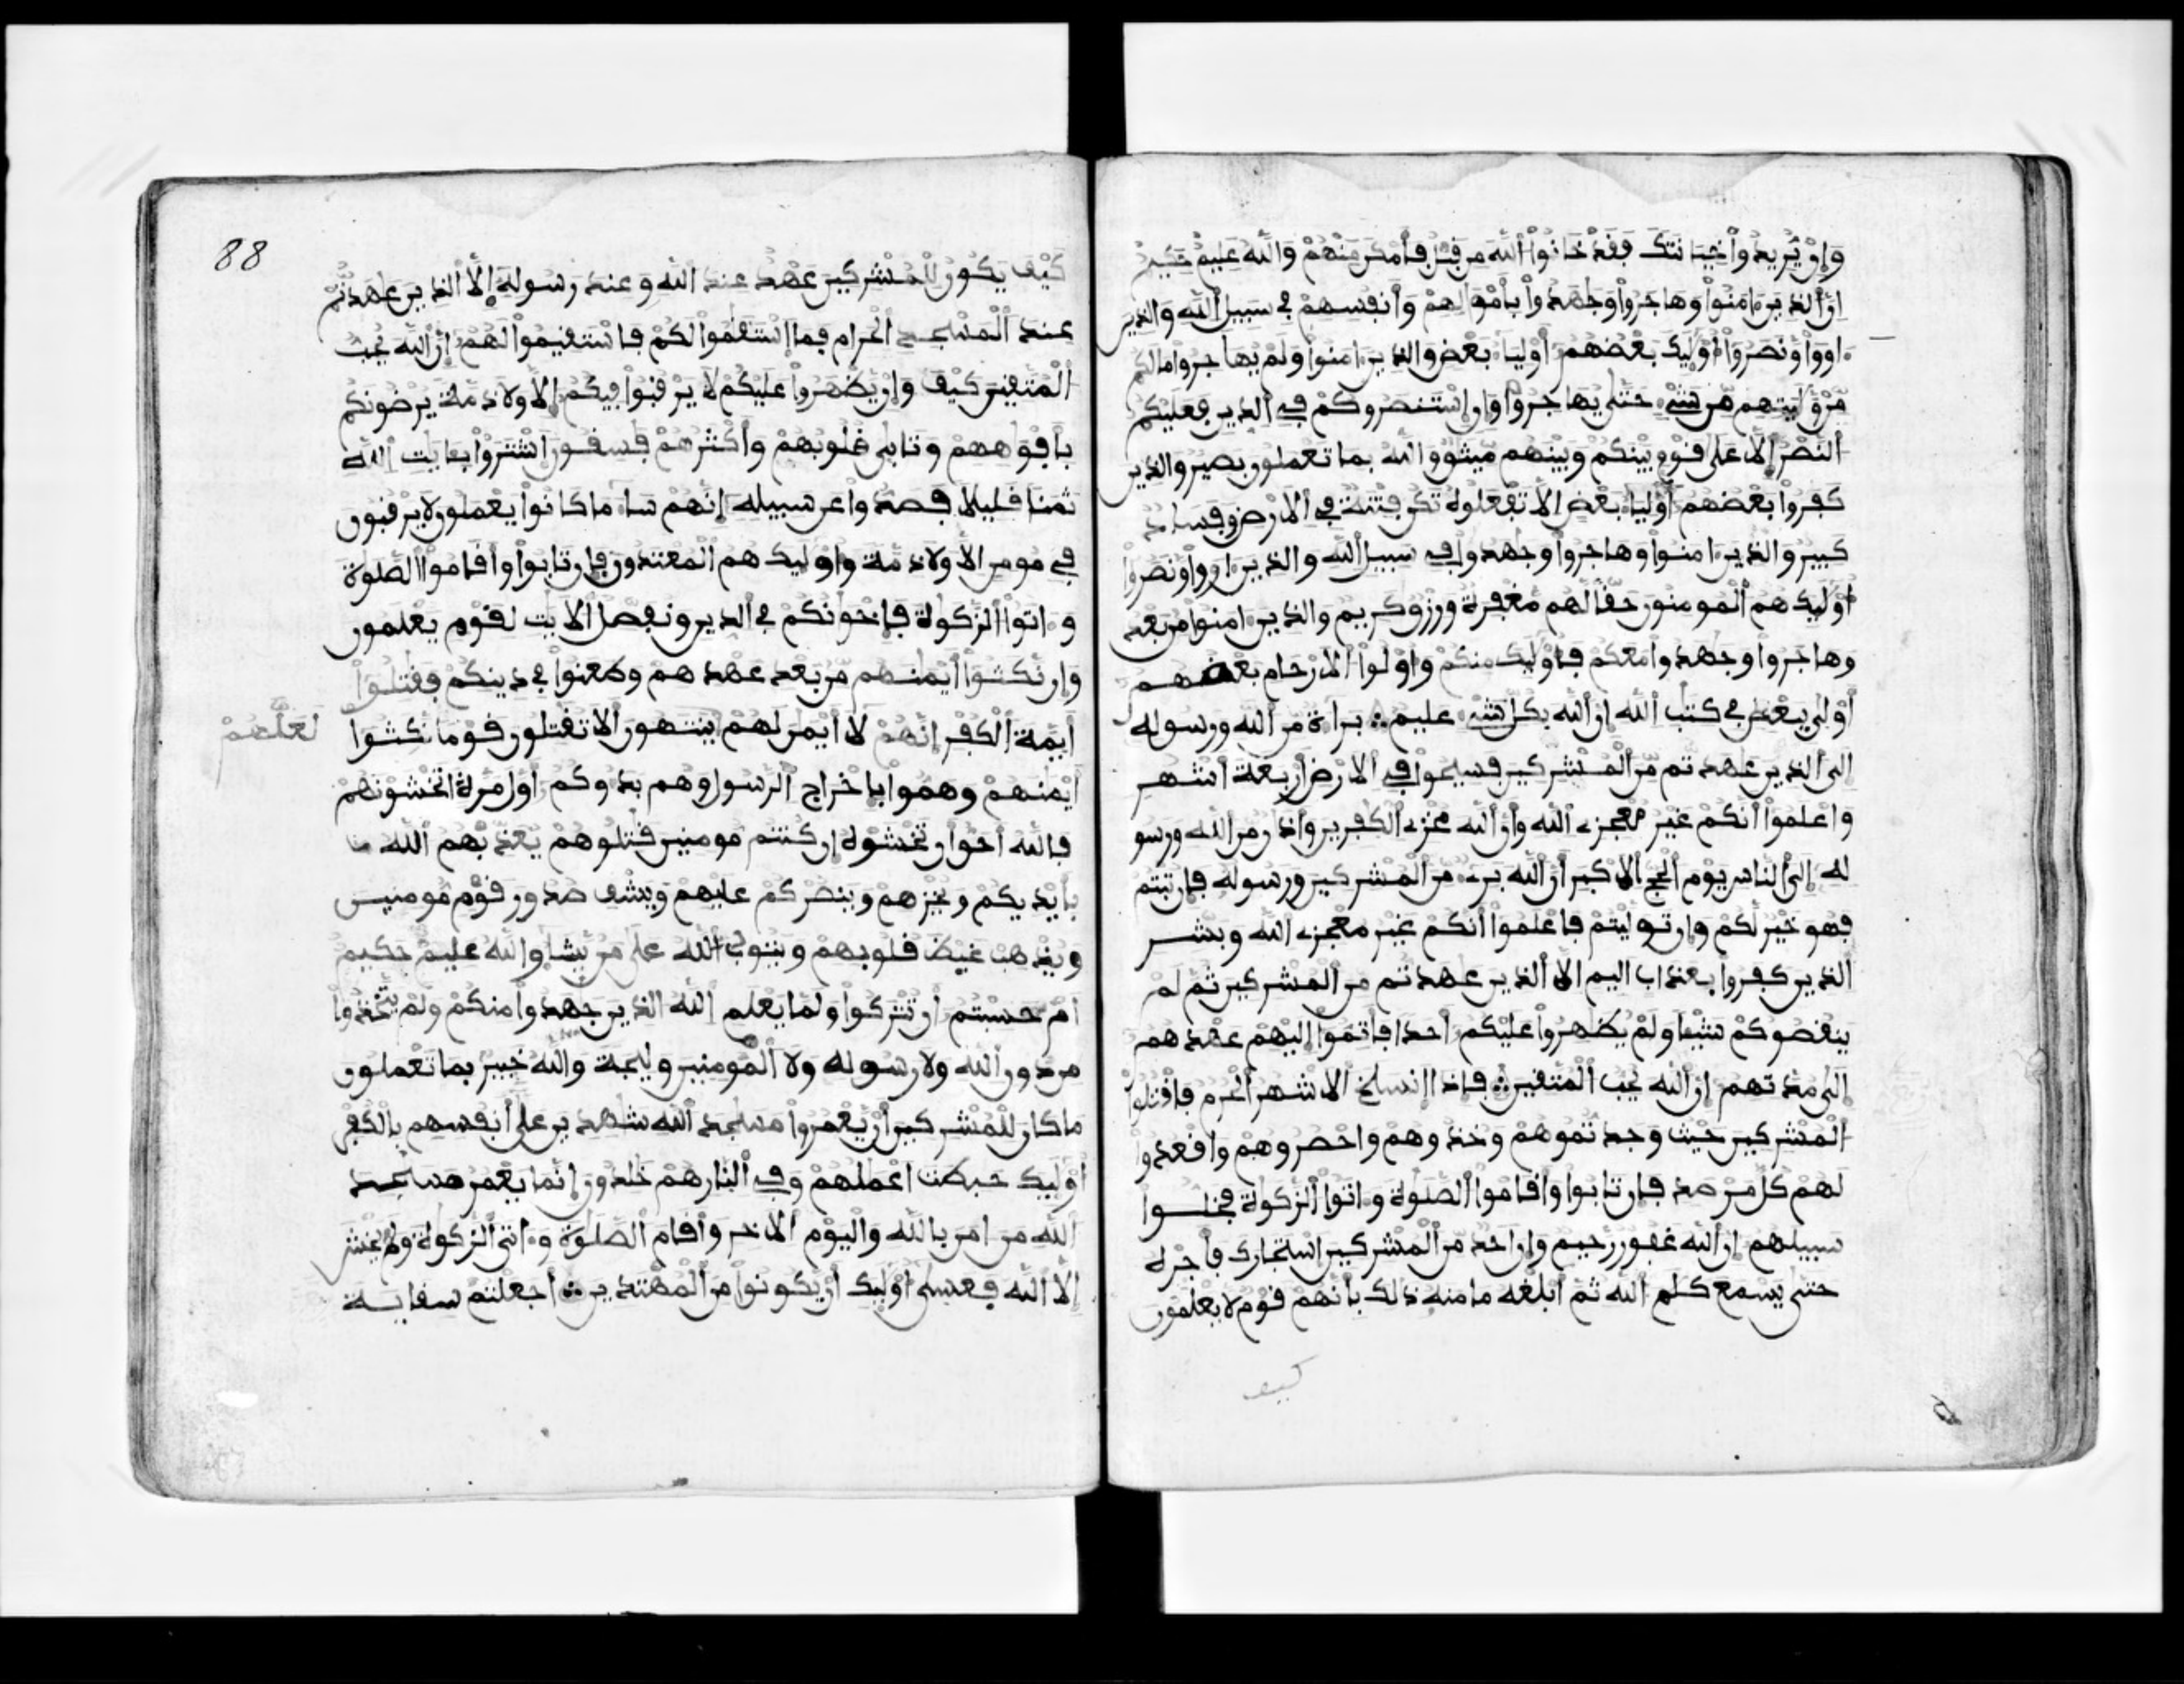 وَإِن يُّرِيدُواْ خِيَانَتَكَ فَقَدْ خَانُواْ اللَّهَ مِن قَبْلُ فَأَمْكَنَ مِنْهُمْ وَاللَّهُ عَلِيمٌ حَكِيمٌ
إن ألذين ءامنوا وهاجروا وجهدوا بأمولهم وأنفسهم في سبيل الله والذين
ءاووا ونصروا أوليك بعضهم أوليا بعض والذين ءامنوا ولم يهاجروا مالكم
من وليتهم من شيء حتى يهاجروا وإن إستنصروكم في ألدين فعليكم
ألنصر إلا على قوم بينكم وبينهم ميثق والله بما تعملون بصير والذين
كفروا بعضهم أوليا بعض إلا تفعلوه تكن فتنة في ألارض وفساد
كبير والذين ءامنوا وهاجروا وجهدوا في سبيل الله والذين ءاووا ونصروا
أوليك هم ألمومنون حقا لهم مغفرة ورزق كريم والذين ءامنوا من بعد
وهاجروا وجهدوا معكم فأوليك منكم وأولوا ألارحام بعضهم
أولى ببعض في كتب الله إن ألله بكل شيء عليم ∴ براءة من الله ورسوله
إلى ألذين عهدتم من ألمشركين فسيحوا في ألارض أربعة أشهر
واعلموا أنكم غير معجزي الله وأن ألله مخزي ألكفرين وأذن من الله ورسو
له إلى ألناس يوم ألحج ألاكبر أن ألله بريء من ألمشركين ورسوله فإن تبتم
فهو خير لكم وإن توليتم فاعلموا أنكم غير معجزي الله وبشر
الذين كفروا بعذاب اليم إلا ألذين عهدتم من ألمشركين ثم لم
ينقصوكم شيئا ولم يظهروا عليكم أحدا فأتموا إليهم عهدهم
إلى مدتهم إن ألله يحب ألمتقين ∴ فإذا إنسلخ ألاشهر ألحرم فاقتلوا
ألمشركين حيث وجدتموهم وخذوهم واحصروهم واقعدوا
لهم كل مرصد فإن تابوا وأقاموا ألصلوة وءاتوا ألزكوة فخلوا
سبيلهم إن ألله غفور رحيم وإن احد من ألمشركين استجارك فأجره
حتى يسمع كلم ألله ثم أبلغه مامنه ذلك بأنهم قوم لا يعلمون
كيف
88
كيف يكون للمشركين عهد عند الله وعند رسوله إلا ألذين عهدتم
عند ألمسجد ألحرام فما إستقموا لكم فاستقيموا لهم إن ألله يحب
ألمتقين كيف وإن يظهروا عليكم لا يرقبوا فيكم إلا ولا ذمة يرضونكم
بأفوههم وتابى قلوبهم وأكثرهم فسقون إشتروا بعايت الله
ثمنا قليلا فصدوا عن سبيله إنهم ساء ما كانوا يعملون لا يرقبون
في مومن الا ولا ذمة وأوليك هم المعتدون فإن تابوا وأقاموا ألصلوة
وءاتوا ألزكوة فإخونكم في ألدين ونفصل ألايت لقوم يعلمون
وإن نكثوا أيمنهم من بعد عهدهم وطعنوا في دينكم فقتلوا
أيمة ألكفر إنهم لا أيمن لهم ينتهون ألا تقتلون قوما نكثوا
لَعَلَّهُمْ
أيمنهم وهموا بإخراج ألرسول وهم بدءوكم أول مرة أتخشونهم
فالله أحق أن تخشوه إن كنتم مومنين قتلوهم يعذبهم ألله
بأيديكم ويخزهم وينصركم عليهم ويشف صدور قوم مومنين
ويذهب غيظ قلوبهم ويتوب ألله على من يشاء والله عليم حكيم
أم حسبتم أن تتركوا ولما يعلم الله الذين جهدوا منكم ولم يتخذوا
من دون الله ولا رسوله ولا ألمومنين وليجة والله خبير بما تعملون
ما كان للمشركين أن يعمروا مسجد الله شهدين على أنفسهم بالكفر
أوليك حبطت اعملهم وفي ألنار هم خلدون إنما يعمر مسجد
الله من امن بالله واليوم ألاخر وأقام ألصلوة وءاتى ألزكوة ولم يخش
إلا ألله فعسى أوليك أن يكونوا من ألمهتدين ∴ أجعلتم سقاية